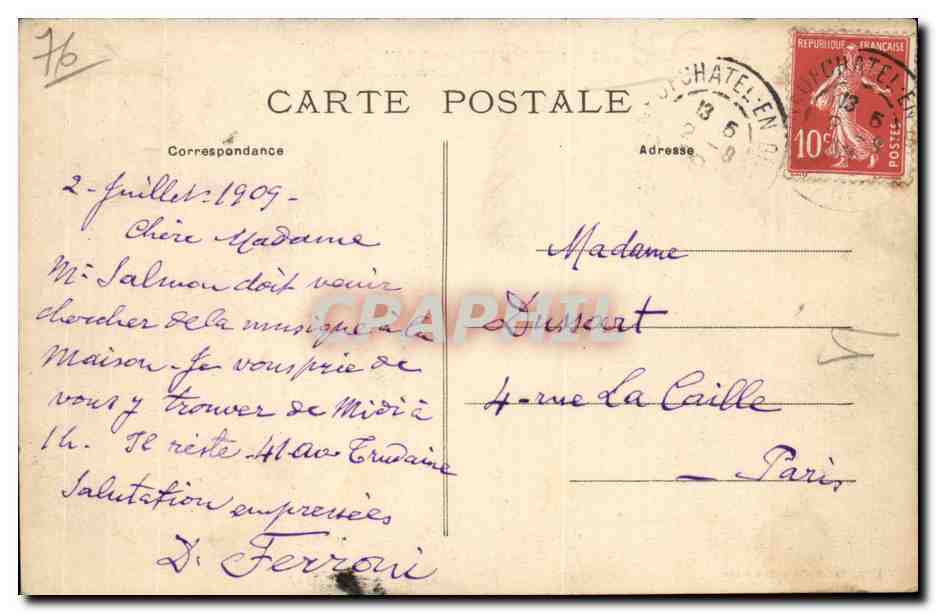 76
CARTE POSTALE
Correspondance
Adresse
REPUBLIQUE FRANÇAISE
10c
POSTES
NEUFCHATEL-EN
13 5
2
2-Juillet-1909-
Chère Madame
Mr Salmon doit venir
chercher de la musique à la
maison-Je vous prie de
vous y trouver de Midi à
1h. Il reste 41 av Trudaine
Salutation empressées
D. Ferroni
Madame
Dussart
4-rue La Caille
-Paris
CPAPHIL